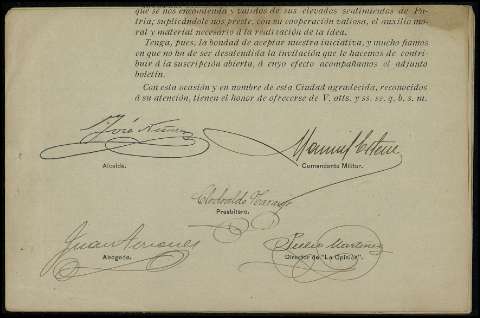 que se nos encomienda y validos de sus elevados sentimientos de Pa-
tria, suplicándole nos preste, con su cooperación valiosa, el auxilio mo-
ral y material necesario á la realización de la idea.
Tenga, pues, la bondad de aceptar nuestra iniciativa, y mucho fiamos
en que no ha de ser desatendida la invitación que le hacemos de contri-
buir á la suscripción abierta, á cuyo efecto acompañamos el adjunto
boletín.
Con esta ocasión y en nombre de esta Ciudad agradecida, reconocidos
á su atención, tienen el honor de ofrecerse de V. atts. y ss. ss. q. b. s. m.
José
Manuel
Alcalde.
Comandante Militar.
Clodoaldo
Presbítero.
Juan
Julio Martinez
Abogado.
Director de "La Opinión".